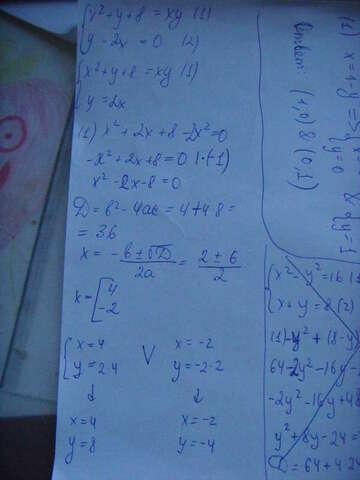 x²+y+8 = xy (1)
y - 2x = 0 (2)
x²+y+8 = xy (1)
y = 2x
(1) x²+2x+8-2x²=0
-x²+2x+8=0 |·(-1)
x²-2x-8=0
D = b²-4ac = 4+4·8=
= 36
x = -b±√D / 2a = 2±6 / 2
x = [4
-2
x=4 V x=-2
y=2·4 y=-2·2
↓ ↓
x=4 x=-2
y=8 y=-4
(1) x=1-y
y=0 y=1
Ответ: (1,0) & (0,1)
x²-y²=16 (1)
x+y=8 (2)
(1) -y²+(8-y)
64-2y²-16y-
-2y²-16y+48
y²+8y-24=
D=64+4·24